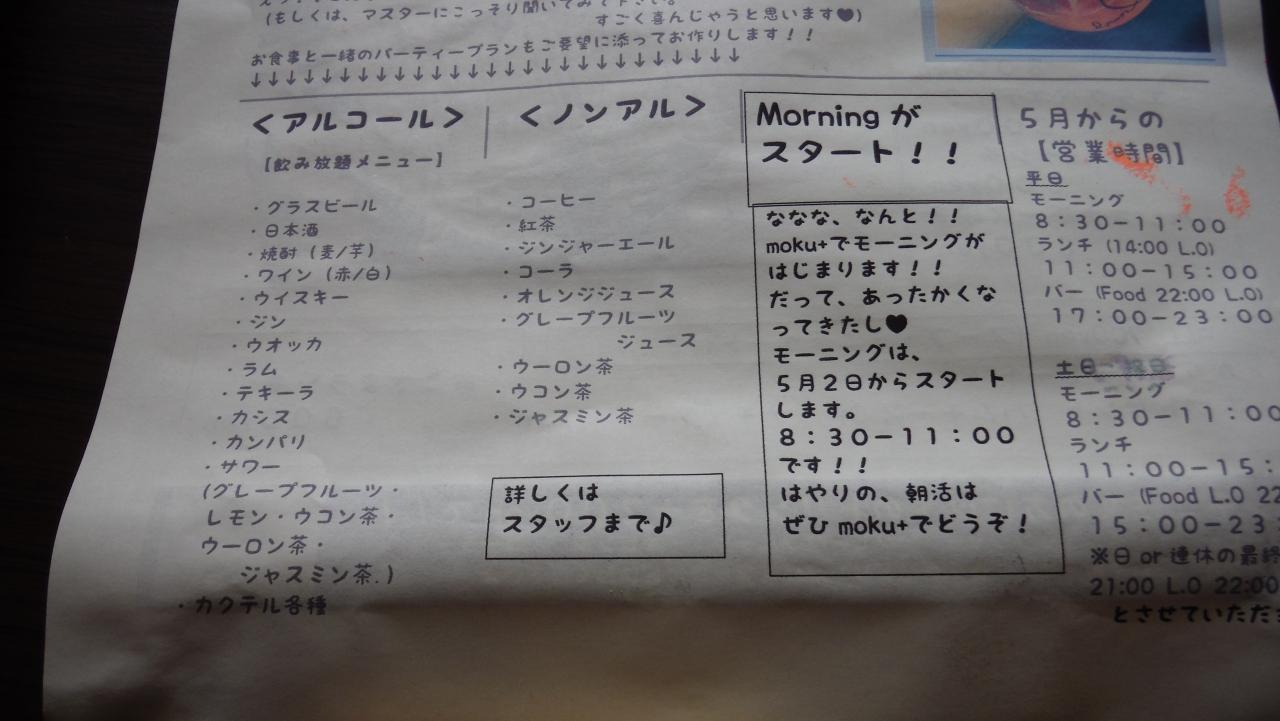 (もしくは、マスターにこっそり聞いてみて下さい。
すごく喜んじゃうと思います♥)
お食事と一緒のパーティープランもご要望に添ってお作りします！！
↓↓↓↓↓↓↓↓↓↓↓↓↓↓↓↓↓↓↓↓↓↓↓↓↓↓↓↓
＜アルコール＞
【飲み放題メニュー】
・グラスビール
・日本酒
・焼酎（麦/芋）
・ワイン（赤/白）
・ウイスキー
・ジン
・ウオッカ
・ラム
・テキーラ
・カシス
・カンパリ
・サワー
(グレープフルーツ・
レモン・ウコン茶・
ウーロン茶・
ジャスミン茶.)
・カクテル各種
＜ノンアル＞
・コーヒー
・紅茶
・ジンジャーエール
・コーラ
・オレンジジュース
・グレープフルーツ
ジュース
・ウーロン茶
・ウコン茶
・ジャスミン茶
詳しくは
スタッフまで♪
Morningが
スタート！！
ななな、なんと！！
moku+でモーニングが
はじまります！！
だって、あったかくな
ってきたし♥
モーニングは、
５月２日からスタート
します。
８：３０－１１：００
です！！
はやりの、朝活は
ぜひmoku+でどうぞ！
５月からの
【営業時間】
平日
モーニング
８：３０－１１：００
ランチ（14:00 L.O）
１１：００－１５：００
バー（Food 22:00 L.O）
１７：００－２３：００
土日・祝日
モーニング
８：３０－１１：００
ランチ
１１：００－１５：
バー（Food L.O 22
１５：００－２３
※日or連休の最終
21:00 L.O 22:00
とさせていただき